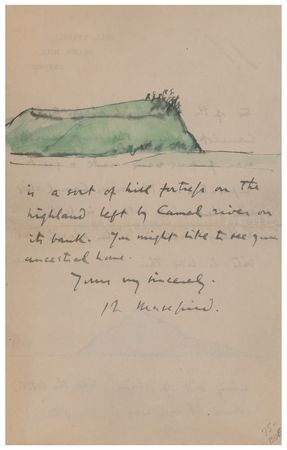 is a sort of hill fortress on the
highland left by Camel river on
its bank. You might like to see your
ancestral home.
Yours very sincerely.
Masefield.